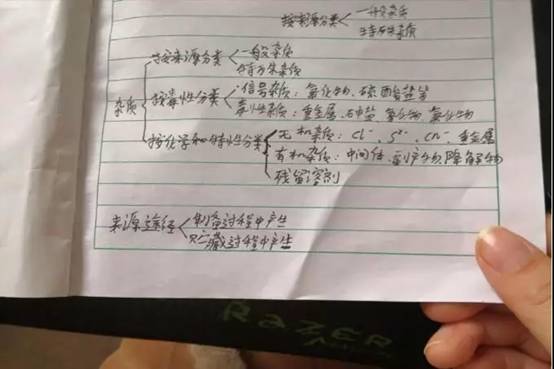 按来源分类 一般杂质
特殊杂质
按来源分类 一般杂质
特殊杂质
杂质 按毒性分类 信号杂质：氯化物、硫酸盐等
毒性杂质：重金属、砷盐、氰化物、氟化物
按化学和特性分类 无机杂质：Cl⁻、S²⁻、CN⁻、重金属
有机杂质：中间体、副产物、降解物
残留溶剂
来源途径 制备过程中产生
贮藏过程中产生
RAZER